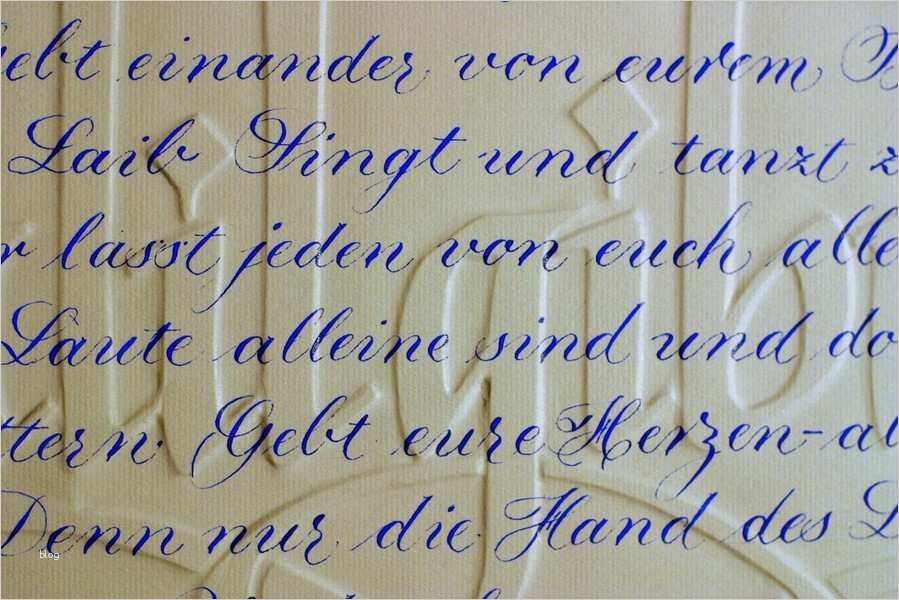 ebt einander von eurem B
Laib Singt und tanzt z
r lasst jeden von euch alle
Laute alleine sind und do
ttern. Gebt eure Herzen-al
Denn nur die Hand des L
blog